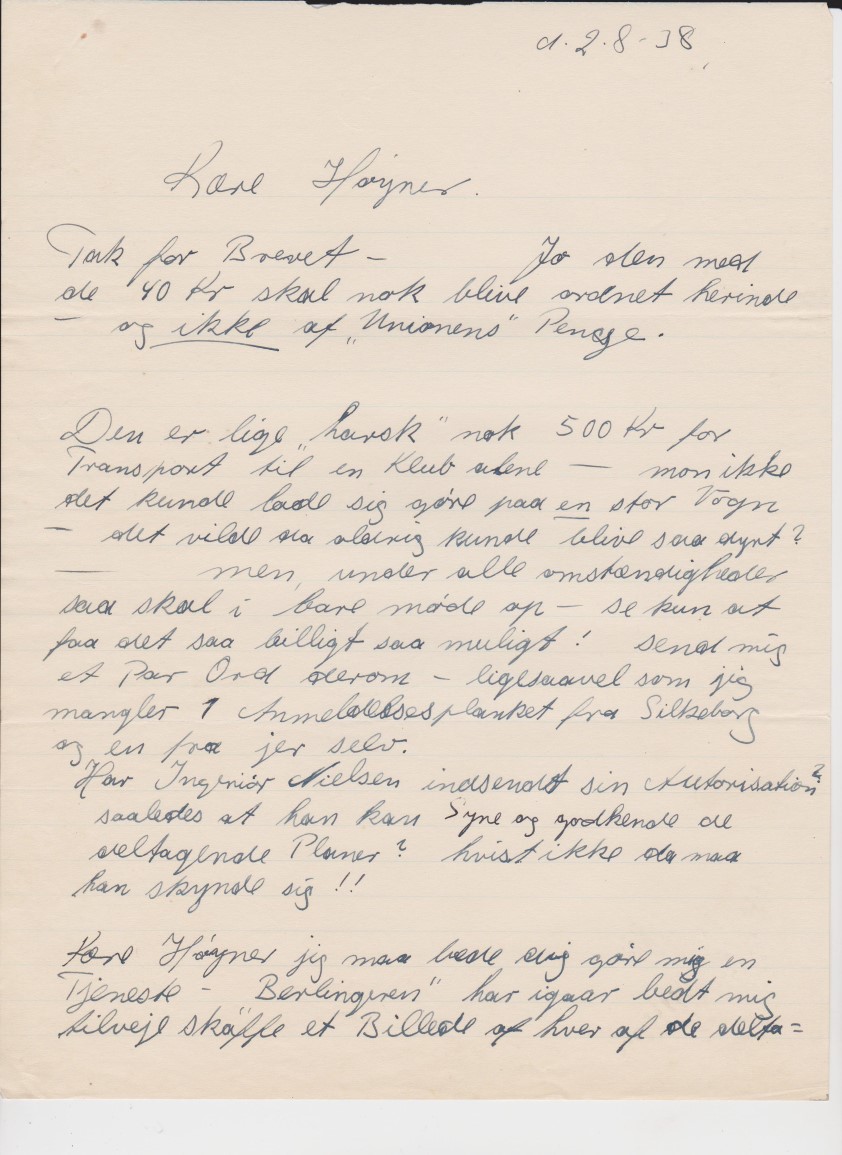 d. 2.8-38
Kære Høyner.
Tak for Brevet – Jo den med
de 40 Kr skal nok blive ordnet herinde
– og ikke af „Unionens" Penge.
Den er lige „harsk" nok 500 Kr for
Transport til en Klub alene – mon ikke
det kunde lade sig gøre paa en stor Vogn
– det vilde da aldrig kunde blive saa dyrt?
— men, under alle omstændigheder
saa skal i bare møde op – se kun at
faa det saa billigt saa muligt! send mig
et Par Ord derom – ligesaavel som jig
mangler 1 Anmeldelsesplanket fra Silkeborg
og en fra jer selv.
Har Ingeniør Nielsen indsendt sin Autorisation?
saaledes at han kan Syne og godkende de
deltagende Planer? hvist ikke da maa
han skynde sig!!
Kære Høyner jig maa bede dig gøre mig en
Tjeneste – Berlingeren" har igaar bedt mig
tilveje skaffe et Billede af hver af de delta=